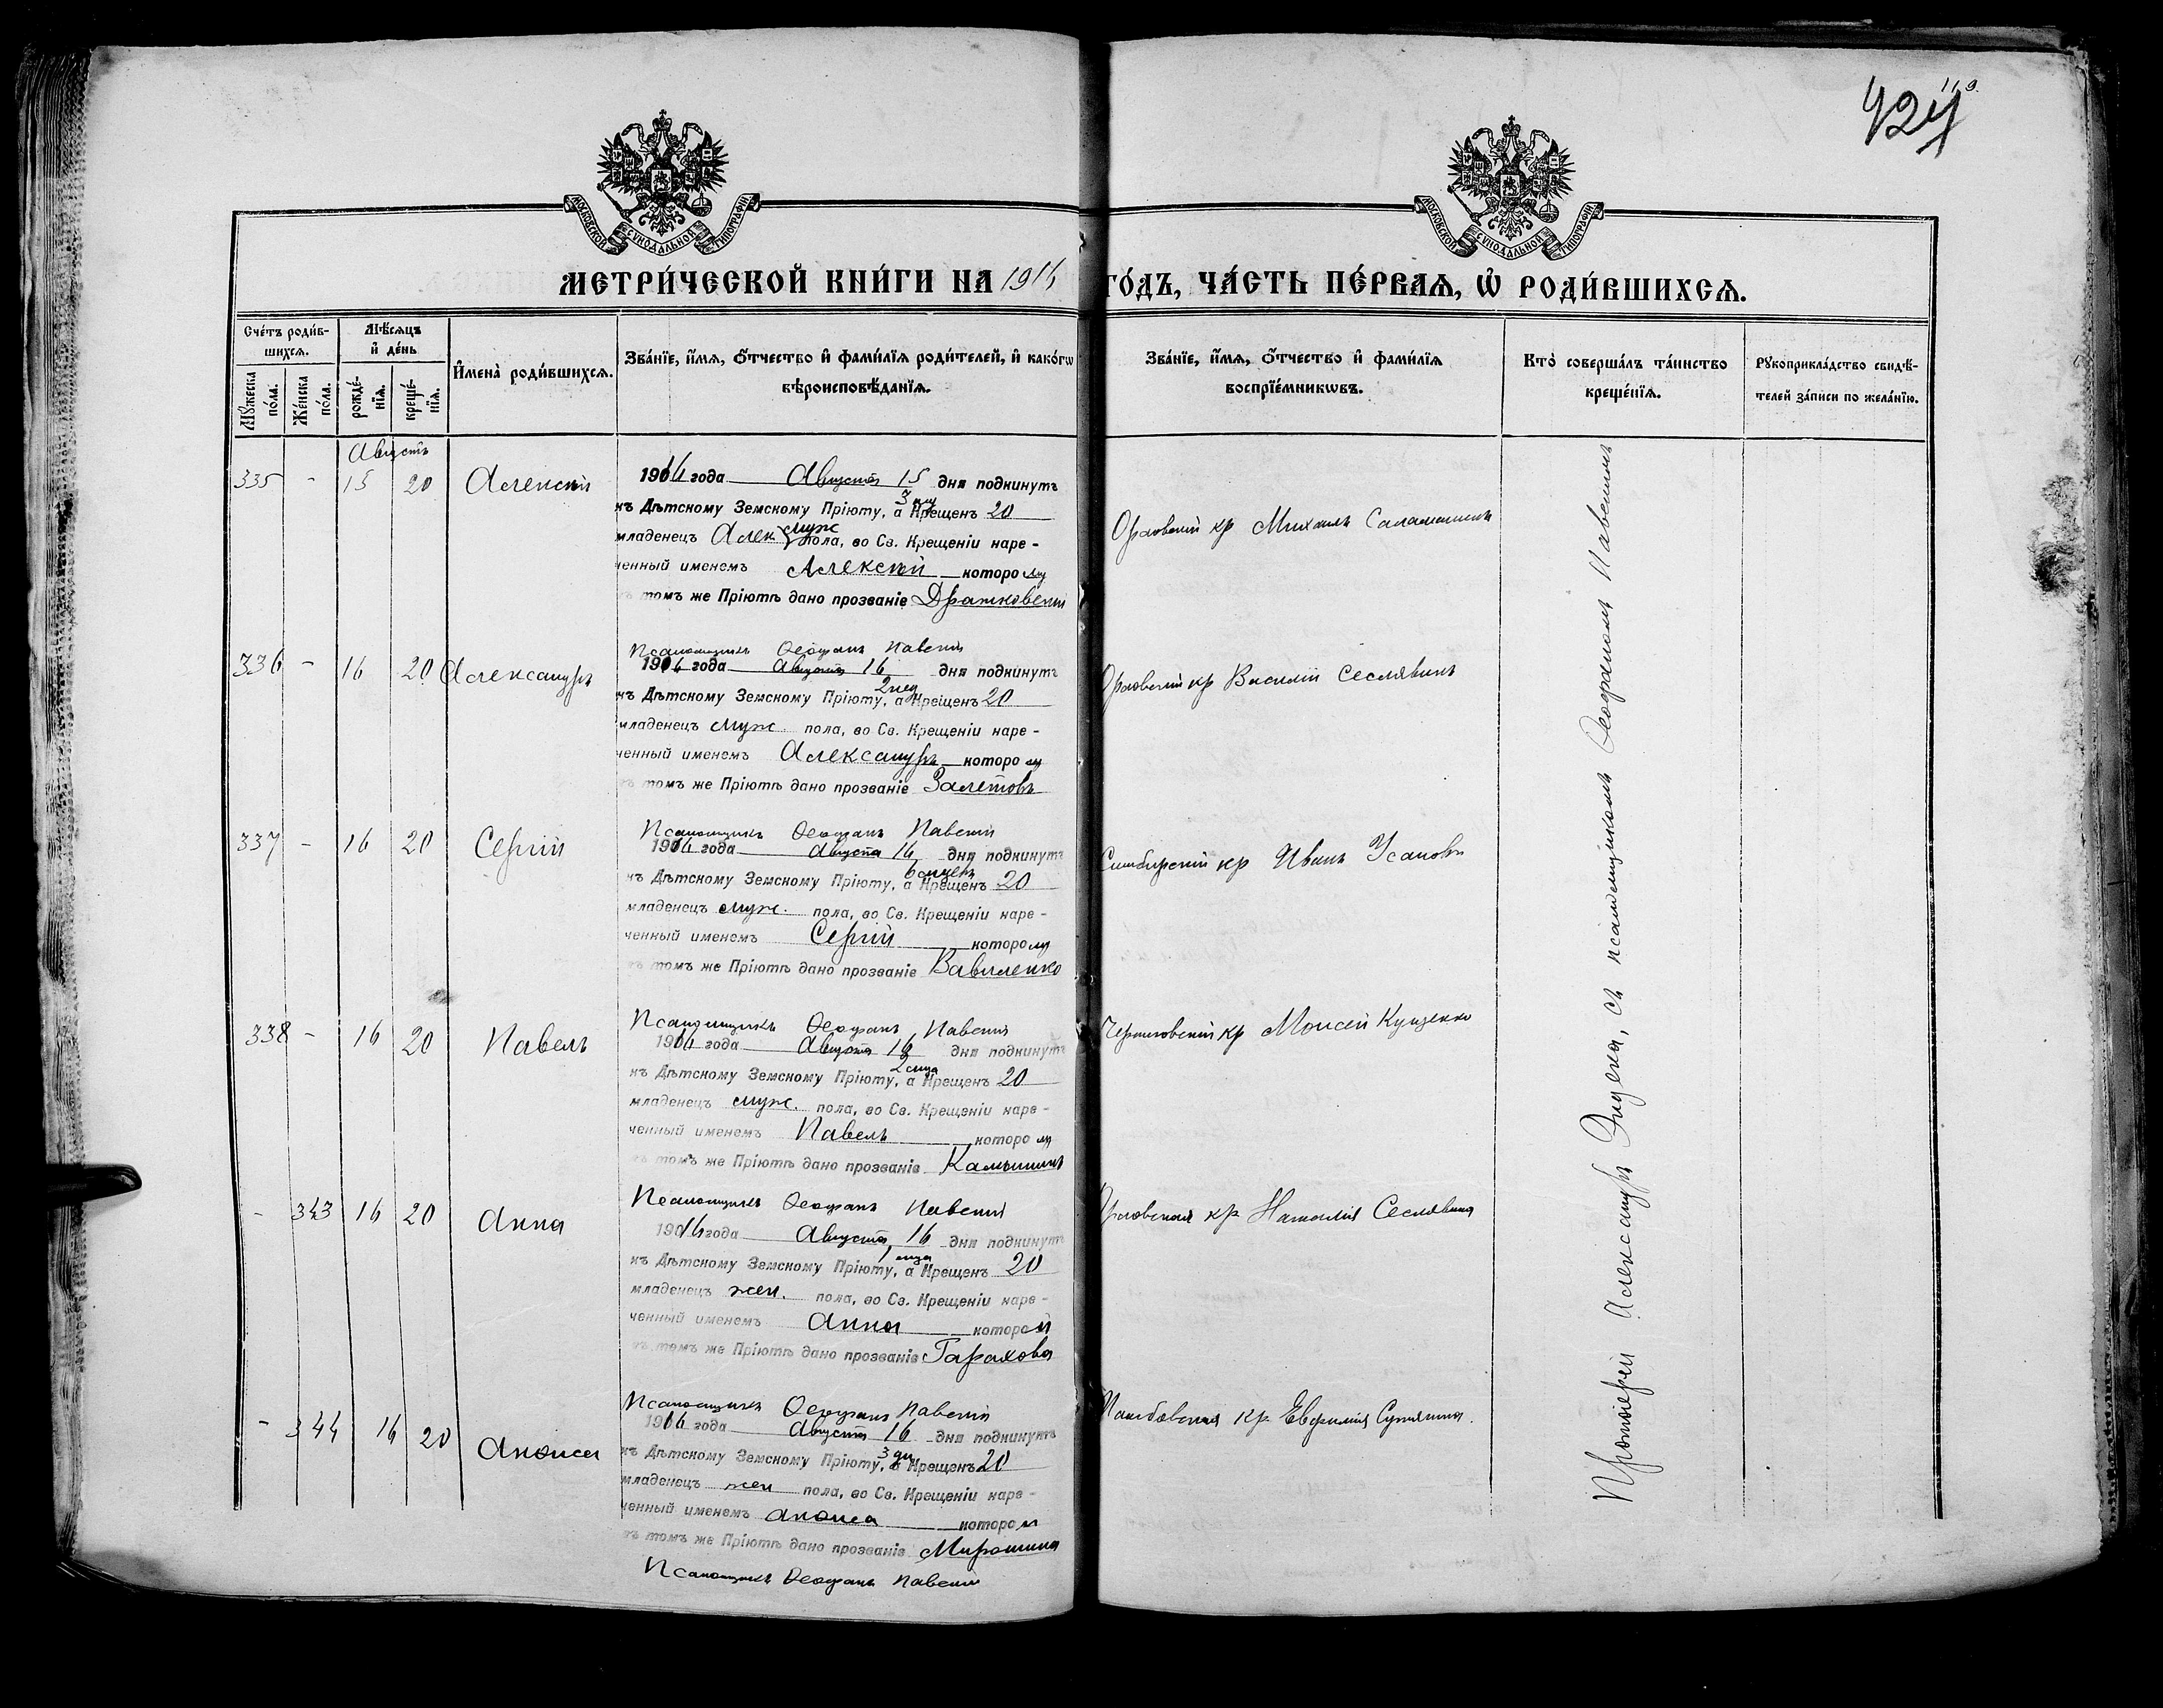 424
МОСКОВСКОЙ СѴНОДАЛЬНОЙ ТИПОГРАФІИ
МОСКОВСКОЙ СѴНОДАЛЬНОЙ ТИПОГРАФІИ
МЕТРИ́ЧЕСКОЙ КНИ́ГИ НА 191 ГО́ДЪ, ЧА́СТЬ ПЕ́РВАѦ, Ѽ РОДИ́ВШИХСѦ.
Сче́тъ роди́в-
шихсѧ.
Мꙋ́жеска по́ла.
Же́нска по́ла.
Мѣ́сѧцъ
и҆ де́нь
рожде́-нїѧ.
креще́-нїѧ.
И҆мена̀ роди́вшихсѧ.
Зва́нїе, и҆́мѧ, ѻ҆́тчество и҆ фами́лїѧ роди́телей, и҆ како́гѡ
вѣроисповѣ́данїѧ.
Зва́нїе, и҆́мѧ, ѻ҆́тчество и҆ фами́лїѧ
воспрїе́мникѡвъ.
Кто̀ соверша́лъ та́инство
креще́нїѧ.
Рꙋкоприкла́дство свидѣ́-
телей за́писи по жела́нїю.
Августъ
335 - 15 20 Алексѣй
1916 года Августа 15 дня подкинутъ
къ Дѣтскому Земскому Пріюту, а Крещенъ 20
младенецъ муж пола, во Св. Крещеніи наре-
ченный именемъ Алексѣй которому
въ томъ же Пріютѣ дано прозваніе
Псаломщикъ Ѳеофанъ Павскій
Орловскій кр Михаилъ
336 - 16 20 Александръ
1916 года Августа 16 дня подкинутъ
къ Дѣтскому Земскому Пріюту, 2 нед а Крещенъ 20
младенецъ муж пола, во Св. Крещеніи наре-
ченный именемъ Александръ которому
въ томъ же Пріютѣ дано прозваніе Залетовъ
Псаломщикъ Ѳеофанъ Павскій
Орловскій кр Василій Сеславинъ
337 - 16 20 Сергій
1916 года Августа 16 дня подкинутъ
къ Дѣтскому Земскому Пріюту, а Крещенъ 20
младенецъ муж. пола, во Св. Крещеніи наре-
ченный именемъ Сергій которому
въ томъ же Пріютѣ дано прозваніе Вавиленко
Псаломщикъ Ѳеофанъ Павскій
Симбирскій кр Иванъ Усановъ
338 - 16 20 Павелъ
1916 года Августа 16 дня подкинутъ
къ Дѣтскому Земскому Пріюту, а Крещенъ 20
младенецъ муж. пола, во Св. Крещеніи наре-
ченный именемъ Павелъ которому
въ томъ же Пріютѣ дано прозваніе
Псаломщикъ Ѳеофанъ Павскій
Черниговскій кр Моисей Куценко
- 343 16 20 Анна
1916 года Августа 16 дня подкинутъ
къ Дѣтскому Земскому Пріюту, а Крещенъ 20
младенецъ жен. пола, во Св. Крещеніи наре-
ченный именемъ Анна которой
въ томъ же Пріютѣ дано прозваніе Гарахова
Псаломщикъ Ѳеофанъ Павскій
Орловская кр Наталія Сеславина
- 344 16 20 Анѳиса
1916 года Августа 16 дня подкинутъ
къ Дѣтскому Земскому Пріюту, 3 дн а Крещенъ 20
младенецъ жен пола, во Св. Крещеніи наре-
ченный именемъ Анѳиса которой
въ томъ же Пріютѣ дано прозваніе Мирошина
Псаломщикъ Ѳеофанъ Павскій
Тамбовская кр Евфимія
Протоіерей Александръ съ псаломщикомъ Ѳеофаномъ Павскимъ